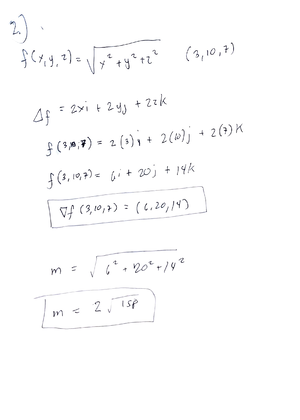 2).
f(x,y,z) = √x² + y² + z² (3,10,7)
Δf = 2xi + 2yj + 2zk
f(3,10,7) = 2(3)i + 2(10)j + 2(7)k
f(3,10,7) = 6i + 20j + 14k
∇f (3,10,7) = (6,20,14)
m = √6² + 20² + 14²
m = 2√158